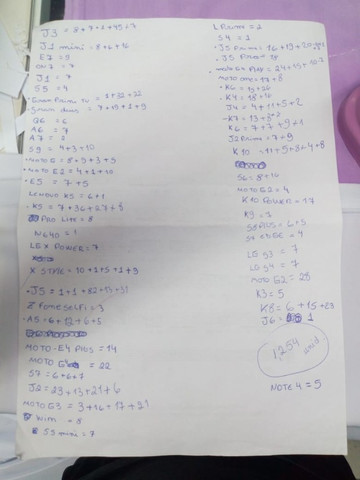 J3 = 8+7+2+45+7
J1 mini = 8+6+16
E7 = 9
ON 7 = 7
J1 = 7
S5 = 4
Gram Prime
Gram duos = 7+19+1+9
Q6 = 6
A6 = 7
A7 =
S9 = 4+3+10
MOTO G = 8+9+3+5
MOTO E2 = 4+1+20
E5 = 7+5
LENOVO K5 = 6+1
K5 = 7+36+27+8
PRO LITE = 8
N640 = 1
LG X POWER = 7
X STYLE = 10+1+5+1+9
J5 = 1+1+82+13+31
Z FONE SELFI = 3
A5 = 6+12+6+5
MOTO-E4 Plus = 14
MOTO = 22
S7 = 6+6+7
J2 = 23+13+21+6
MOTO G3 = 3+16+17+21
Win = 8
S5 mini = 7
L Prime = 2
S4 = 1
J5 Prime 16+19+20
J5 Prime
MOTO G4 Play = 24+15+10+7
MOTO ONE = 17+8
K6 = 19+26
K4 = 18+16
J4 = 4+11+5+2
K7 = 13+8+2
K6 = 7+7+9+1
J2 Prime = 7+9
K10 = 11+5+8+4+8
S6 = 8+16
MOTO E2 = 4
K10 POWER = 17
K9 = 1
S8 PLUS = 6+5
S7 EDGE = 4
LG G3 = 7
LG G4 = 7
MOTO G2 = 28
K3 = 5
K8 = 6+15+28
J6 = 1
1254 unid
NOTE 4 = 5